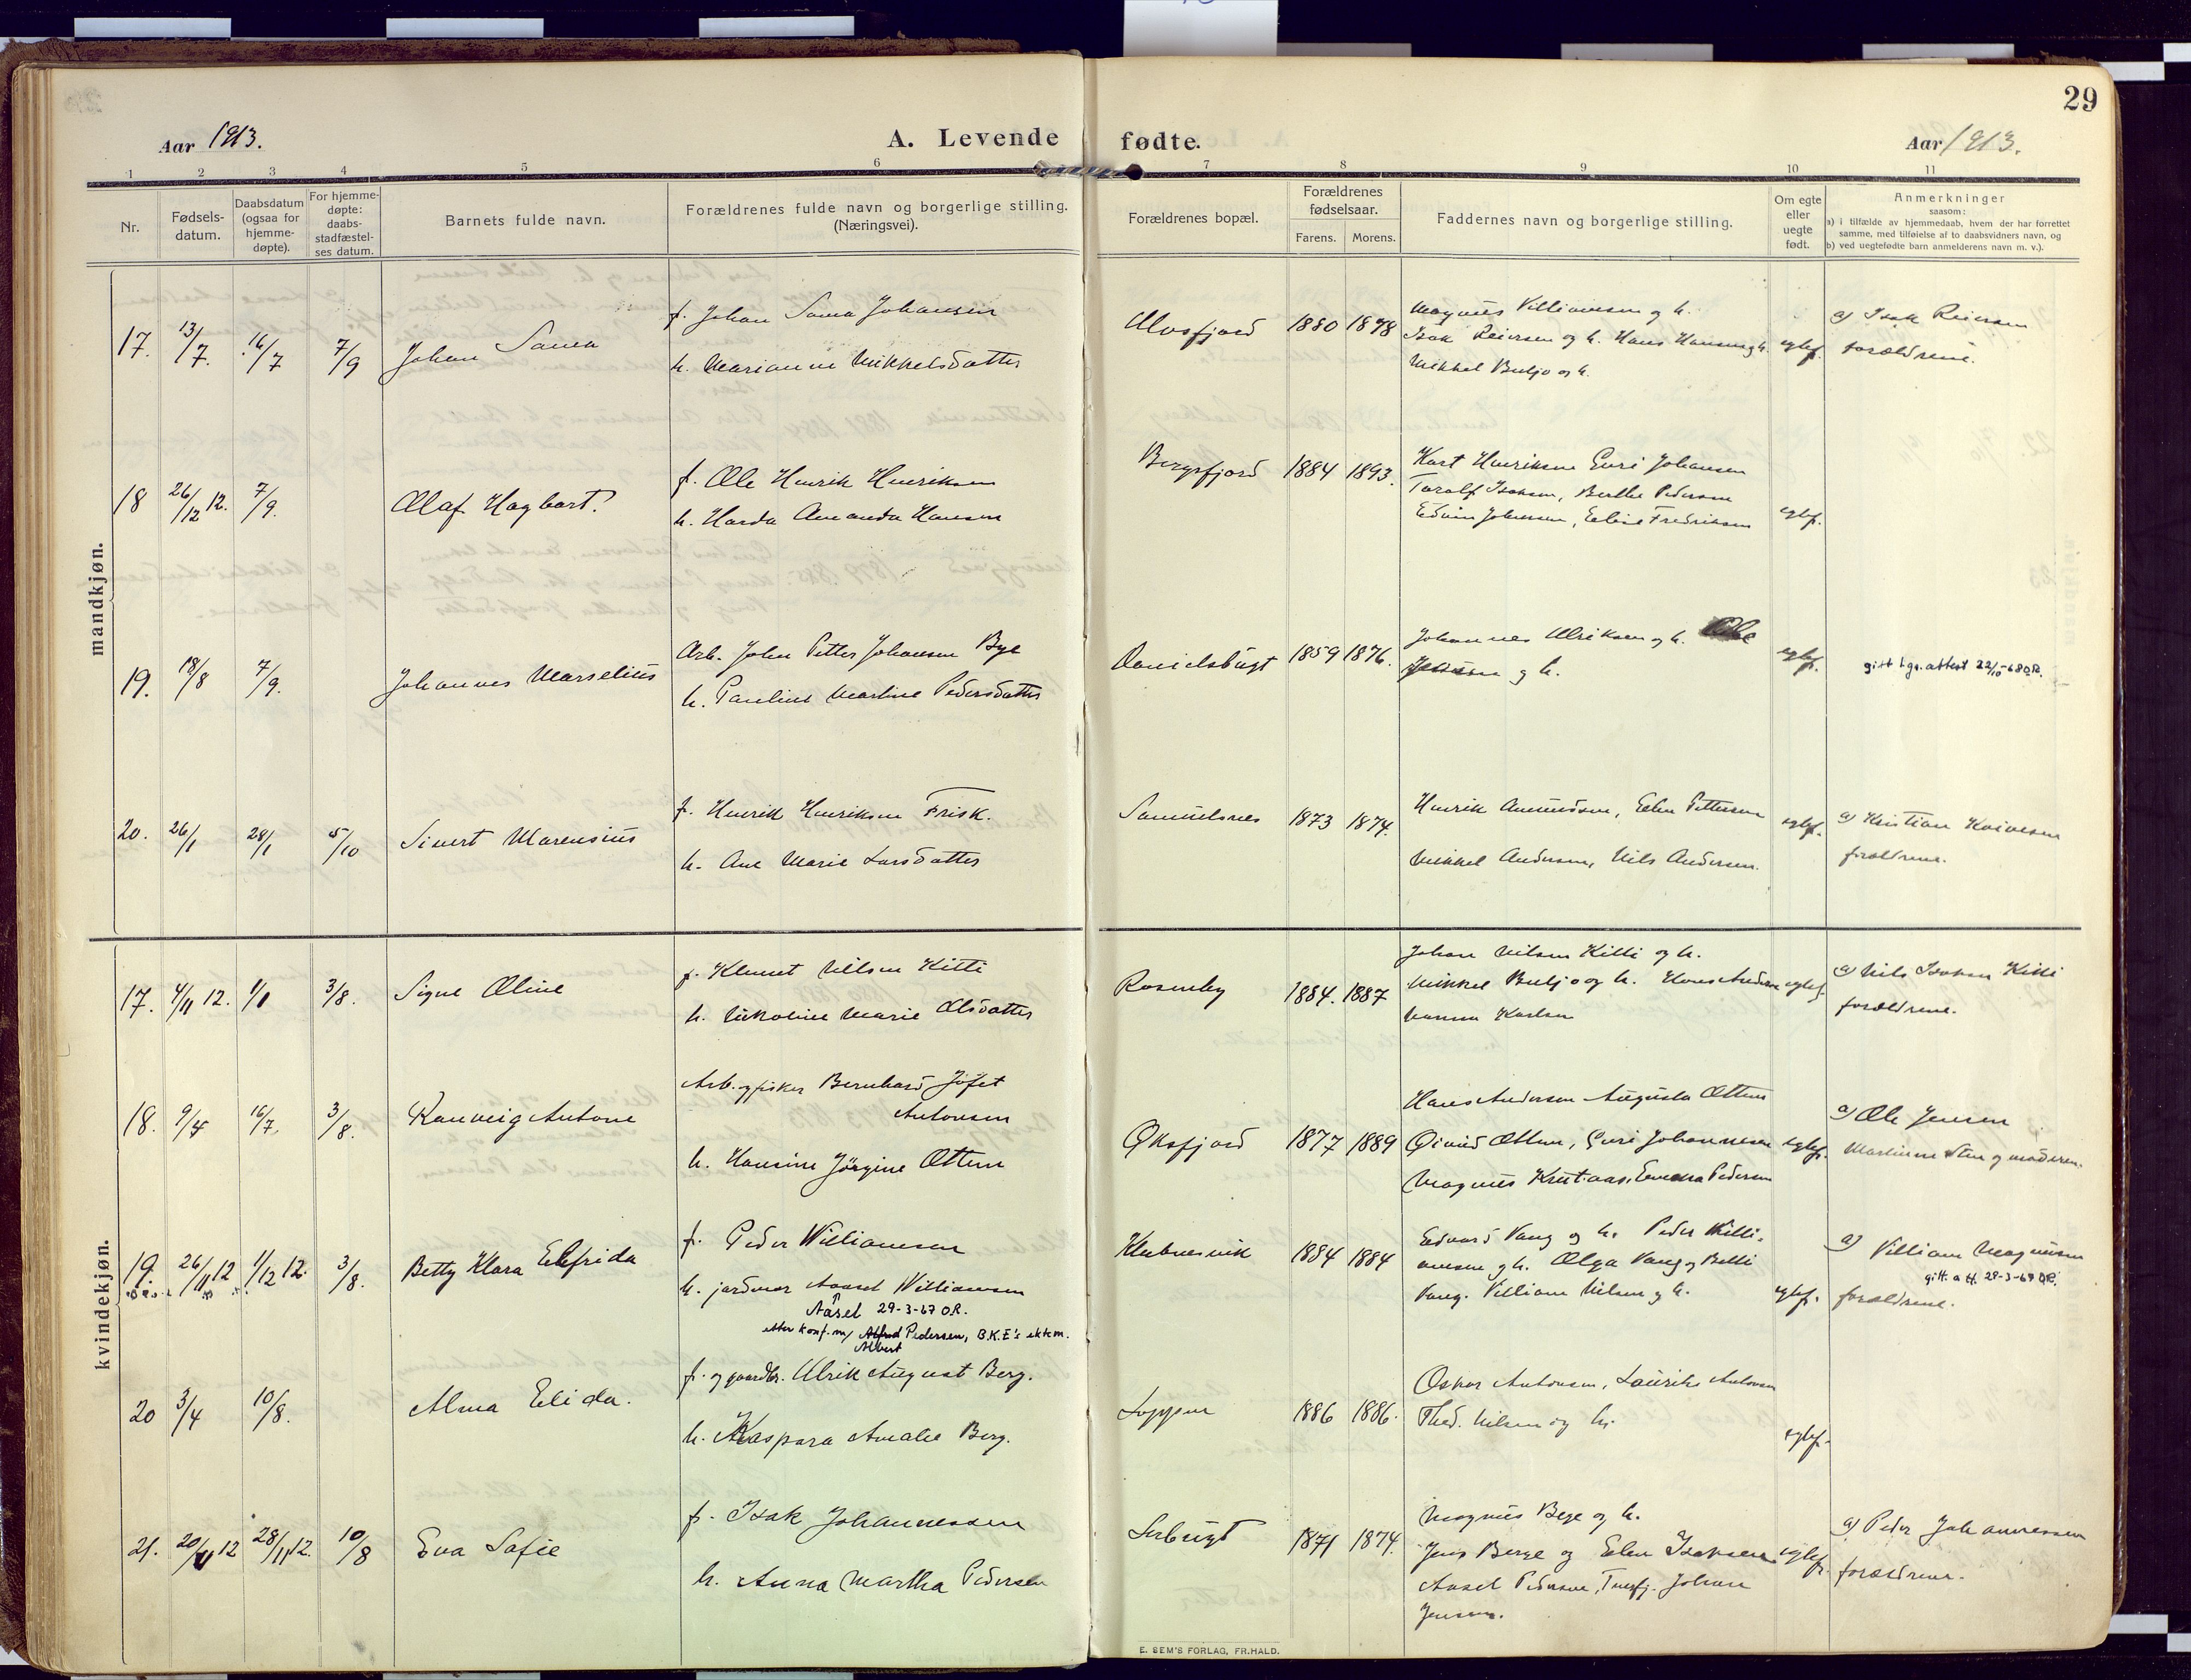 29
Aar 1913.
A. Levende fødte.
Aar 1913.
1 2 3 4 5 6 7 8 9 10 11
Nr.
Fødsels-
datum.
Daabsdatum
(ogsaa for
hjemme-
døpte).
For hjemme-
døpte:
daabs-
stadfæstel-
ses datum.
Barnets fulde navn.
Forældrenes fulde navn og borgerlige stilling.
(Næringsvei).
Forældrenes bopæl.
Forældrenes
fødselsaar.
Farens. Morens.
Faddernes navn og borgerlige stilling.
Om egte
eller
uegte
født.
Anmerkninger
saasom:
a) i tilfælde av hjemmedaab, hvem der har forrettet
samme, med tilføielse af to daabsvidners navn, og
b) ved uegtefødte barn anmelderens navn m. v.).
mandkjøn.
17. 13/7. 16/7 7/9 Johan
f. Johan Johansen
h. Marianne Mikkelsdatter
Ulvsfjord 1880 1878
Magnus Villiamsen og h.
Isak Reiersen og h. Hans Hansen og h.
Mikkel Buljo og h.
egtef.
a) Isak Reiersen
forældrene.
18 26/12 12. 7/9. Olaf Hagbart.
f. Ole Henrik Henriksen
h. Harda Amanda Hansen
Bergsfjord 1884 1893.
Kart Henriksen Guri Johansen
Toralf Isaksen, Berthe Pedersen
Edvin Johansen, Eline Fredriksen
egtef.
19. 18/8 7/9. Johannes Marselius
Arb. John Petter Johansen Bye
h. Pauline Martine Pedersdatter
Danielsbugt 1859 1876.
Johannes Ulriksen og h. Ole
Jensen og h.
egtef.
gift l. gs. attest 22/10-68 O.R.
20. 26/1 28/1 5/10 Sivert Marensius
f. Henrik Henriksen Frisk.
h. Ane Marie Larsdatter
Samuelsnes 1873 1874.
Henrik Amundsen, Elen Pettersen
Mikkel Andersen, Nils Andersen.
egtef.
a) Kristian
forældrene.
kvindekjøn.
17. 4/11 12. 1/1 3/8. Signe Oline
f. Klemet Nilsen Kitti
h. Nikoline Marie Olsdatter
Rosenby 1884. 1887
Johan Nilsen Kitti og h.
Mikkel Buljo og h. Hans Andersen
Hanna Karlsen
egtef.
a) Nils Isaksen Kitti
forældrene.
18. 9/4 16/7 3/8. Ranveig Antone
Arb. og fisker Bernhard Jöfet
Antonsen
h. Hansine Jörgine Ottem
Øksfjord 1877 1889
Hans Andersen Augusta Ottem
Øivind Ottem, Guri Johannesen
Magnus Emma Pedersen
egtef.
a) Ole Jensen
og moderen.
19. 26/11 12 1/12 12. 3/8. Betty Klara Elefrida
f. Peder Williamsen
h. jordmor Aasel Williamsen
Aasel 29-3-67 O.R.
etter konf. m/ Alfred Pedersen, B.K.E's ektem.
Albert
Klubnesvik 1884 1884
Edvard Vang og h. Peder Willi-
amsen og h. Olga Vang og Betti
Vang. Villiam Nilsen og h.
egtef.
a) Villiam Magnussen
gift. att. 29-3-67 O.R.
forældrene.
20 3/4 10/8. Alma Elida.
f. og gaardbr. Ulrik August Berg.
h. Kaspara Amalie Berg.
Loppen 1886 1886.
Oskar Antonsen, Laurits Antonsen
Thed. Nilsen og h.
egtef.
21. 20/11 12 28/11 12. 10/8 Eva Sofie
f. Isak Johannessen
h. Anna Martha Pedersen
1871 1874.
Magnus Berge og h.
Jens Berge og Elen Isaksen
Aasel Pedersen, Johan
Jensen.
egtef.
a) Peder Johannessen
forældrene.
E. SEM'S FORLAG, FR.HALD.